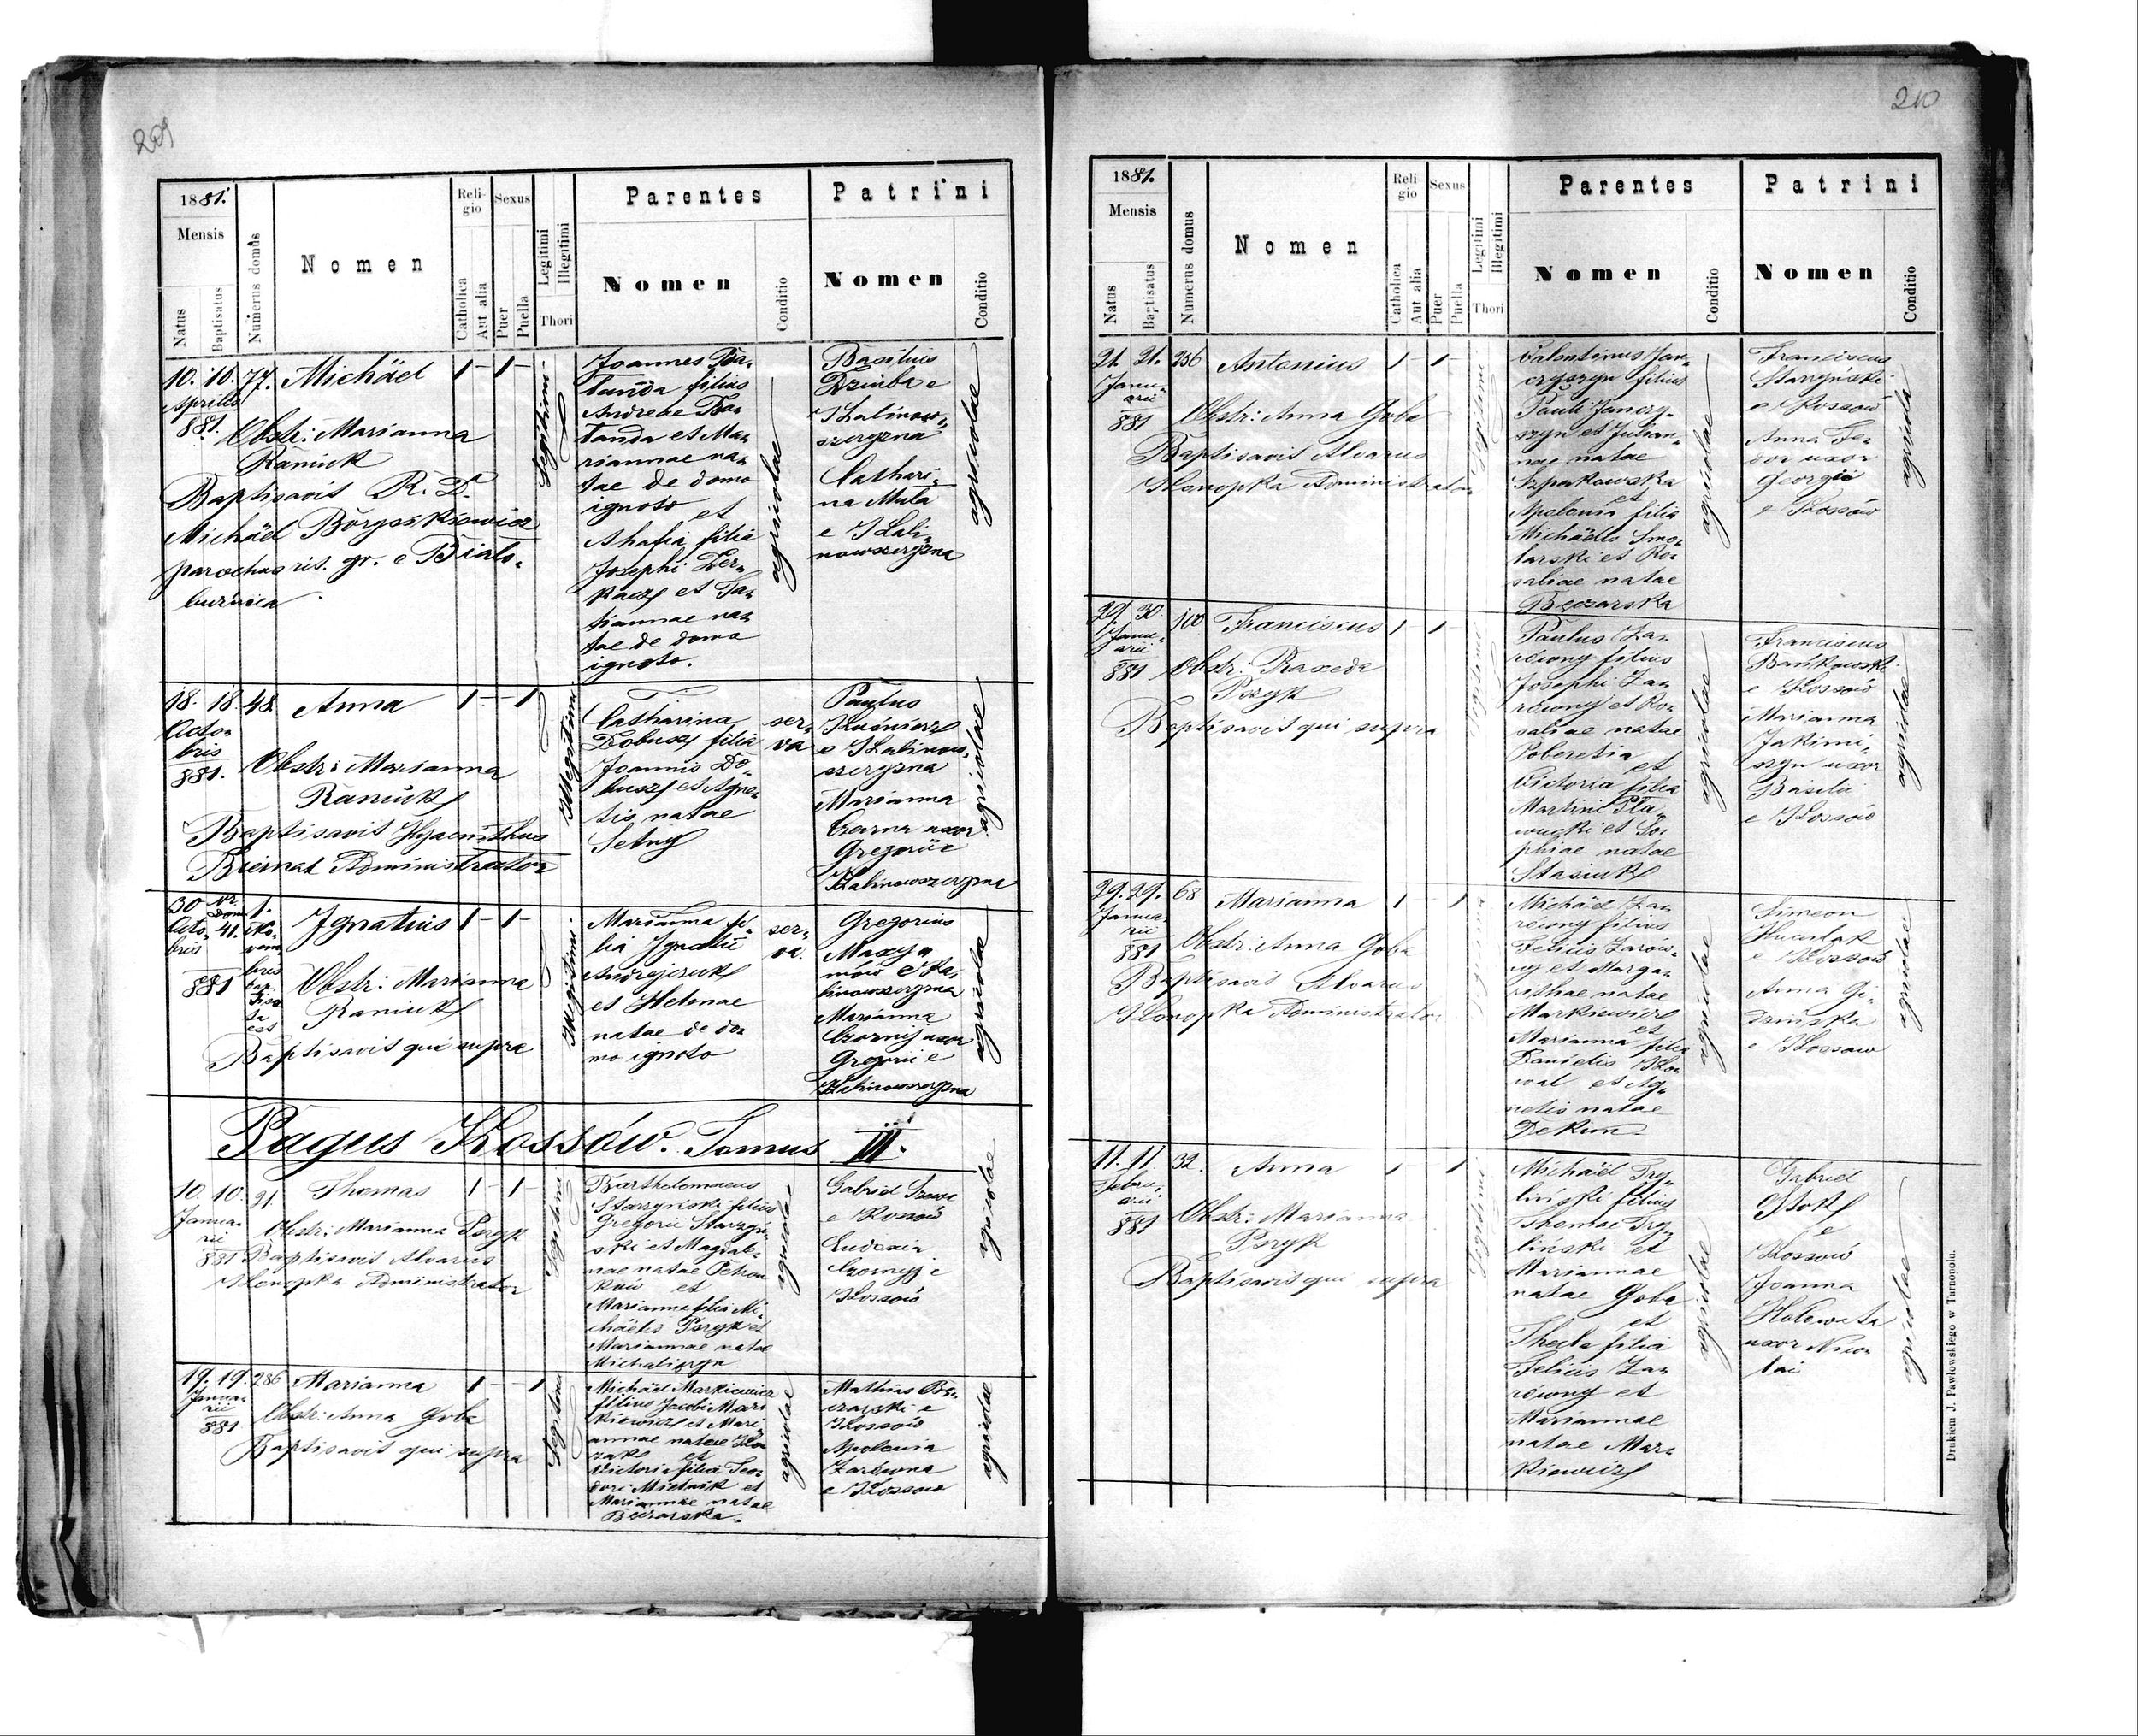 209
1881.
Mensis
Natus
Baptisatus
Numerus domus
Nomen
Religio
Catholica
Aut alia
Sexus
Puer
Puella
Legitimi
Illegitimi
Thori
Parentes
Nomen
Conditio
Patrini
Nomen
Conditio
10. 10. 77. Michäel 1 - 1 -
Aprilis
881.
Obstr: Marianna
Raniuk
Baptisavit R. D.
Michäel
parochus rit. gr. e Biało-
Legitimi
Joannes
filius
Andreae
et Ma-
riannae na-
tae de domo
ignoto et
filia
Josephi Der-
kacz et Ta-
tiannae na-
tae de domo
ignoto.
agricolae
Basilius
Dziuba e
Kalinow-
szczyzna
Cathari-
na Mula
e Kali-
nowszczyzna
agricolae
18. 18. 48. Anna 1 - - 1
Octo-
bris
881.
Obstr: Marianna
Raniuk
Baptisavit Hyacinthus
Biernat Administrator
Illegitimi
Catharina
Dobusz filia
Joannis Do-
busz et Agne-
tis natae
Setny
ser-
va
Paulus
Kuśnierz
e Kalinow-
szczyzna
Marianna
Czarna uxor
Gregorii e
Kalinowszczyzna
agricolae
30 Nr. Dom. 41. 1. Ignatius 1 - 1 -
Octo-
bris
881
No-
vem-
bris
bap-
tisa-
ta
est
Obstr: Marianna
Raniuk
Baptisavit qui supra
Illegitimi
Marianna fi-
lia Ignatii
Andrejczuk
et Helenae
natae de do-
mo ignoto
ser-
va.
Gregorius
Maxy-
mów e Ka-
linowszczyzna
Marianna
Czorny uxor
Gregorii e
Kalinowszczyzna
agricolae
Pagus Kossów. Tomus III.
10. 10. 91. Thomas 1 - 1 -
Janua-
rii
881
Obstr: Marianna Pszyk
Baptisavit Alvarus
Konopka Administrator
Legitimi
Bartholomaeus
Starzyński filius
Gregorii Starzyń-
ski et Magdale-
nae natae Petron-
ków et
Marianna filia Mi-
chäelis Pszyk et
Mariannae natae
Michaliszyn
agricolae
Gabriel Szewc
e Kossów
Eudoxia
Czornyj e
Kossów
agricolae
19. 19. 286 Marianna 1 - - 1
Janua-
rii
881
Obstr: Anna Goba
Baptisavit qui supra
Legitimi
Michäel Markiewicz
filius Jacobi Mar-
kiewicz et Mari-
annae natae Ko-
zak et
Victoria filia Teo-
dori Mielnik et
Mariannae natae
Bęczarska.
agricolae
Mathias Bę-
czarski e
Kossów
Apolonia
Zarówna
e Kossów
agricolae
210
1881.
Mensis
Natus
Baptisatus
Numerus domus
Nomen
Religio
Catholica
Aut alia
Sexus
Puer
Puella
Legitimi
Illegitimi
Thori
Parentes
Nomen
Conditio
Patrini
Nomen
Conditio
21. 21. 256 Antonius 1 - 1 -
Janu-
arii
881
Obstr: Anna Goba
Baptisavit Alvarus
Konopka Administrator
Legitimi
Valentinus Jan-
czyszyn filius
Pauli Janczy-
szyn et Julian-
nae natae
Szpakowska
et
Apolonia filia
Michäelis Smo-
larski et Ro-
saliae natae
Bęczarska
agricolae
Franciscus
Starzyński
e Kossów
Anna Fe-
dor uxor
Georgii
e Kossów
agricola
29. 30. 110 Franciscus 1 - 1 -
Janu-
arii
881
Obstr: Praxeda
Pszyk
Baptisavit qui supra
Legitimi
Paulus Za-
równy filius
Josephi Za-
równy et Ro-
saliae natae
et
Victoria filia
Martini Pła-
wucki et So-
phiae natae
Stasiuk
agricolae
Franciscus
Bańkowski
e Kossów
Marianna
Jakimi-
szyn uxor
Basilii
e Kossów
agricolae
29. 29. 68 Marianna 1 - - 1
Janua-
rii
881
Obstr: Anna Goba
Baptisavit Alvarus
Konopka Administrator
Legitimi
Michäel Za-
równy filius
Felicis Zarów-
ny et Marga-
rithae natae
Markiewicz
et
Marianna filia
Danielis Ko-
wal et Ag-
netis natae
Dekun
agricolae
Simeon
Huculak
e Kossów
Anna Gi-
dzińska
e Kossów
agricolae
11. 11. 32. Anna 1 - - 1
Febru-
arii
881
Obstr: Marianna
Pszyk
Baptisavit qui supra
Legitimi
Michäel Try-
liński filius
Thomae Try-
liński et
Mariannae
natae Goba
et
Thecla filia
Felicis Za-
równy et
Mariannae
natae Mar-
kiewicz
agricolae
Gabriel
e
Kossów
Joanna
Holewata
uxor Nico-
lai
agricolae
Drukiem J. Pawłowskiego w Tarnopolu.